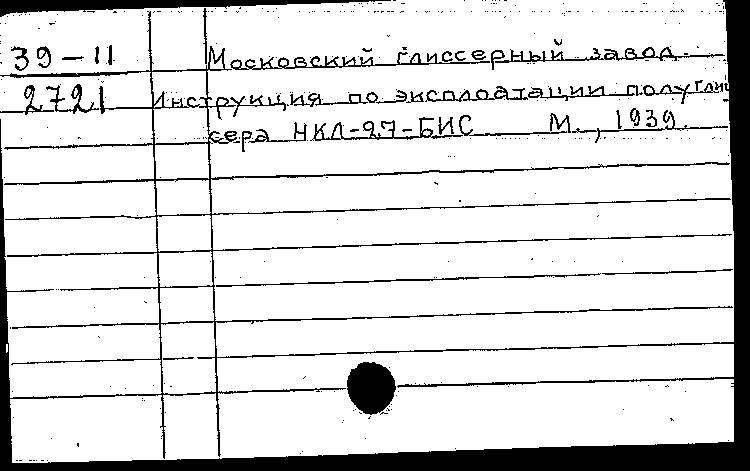 39-11 Московский глиссерный завод.
2721 Инструкция по эксплоатации полугли
сера НКЛ-27-БИС М., 1939.